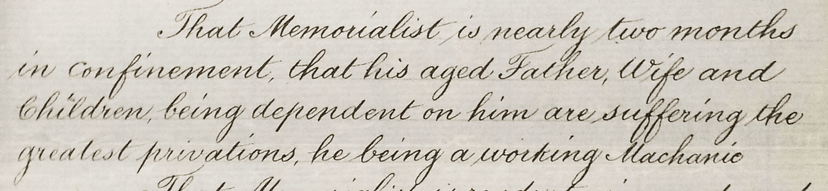 That Memorialist is nearly two months
in confinement, that his aged Father, Wife and
Children, being dependent on him are suffering the
greatest privations, he being a working Machanic